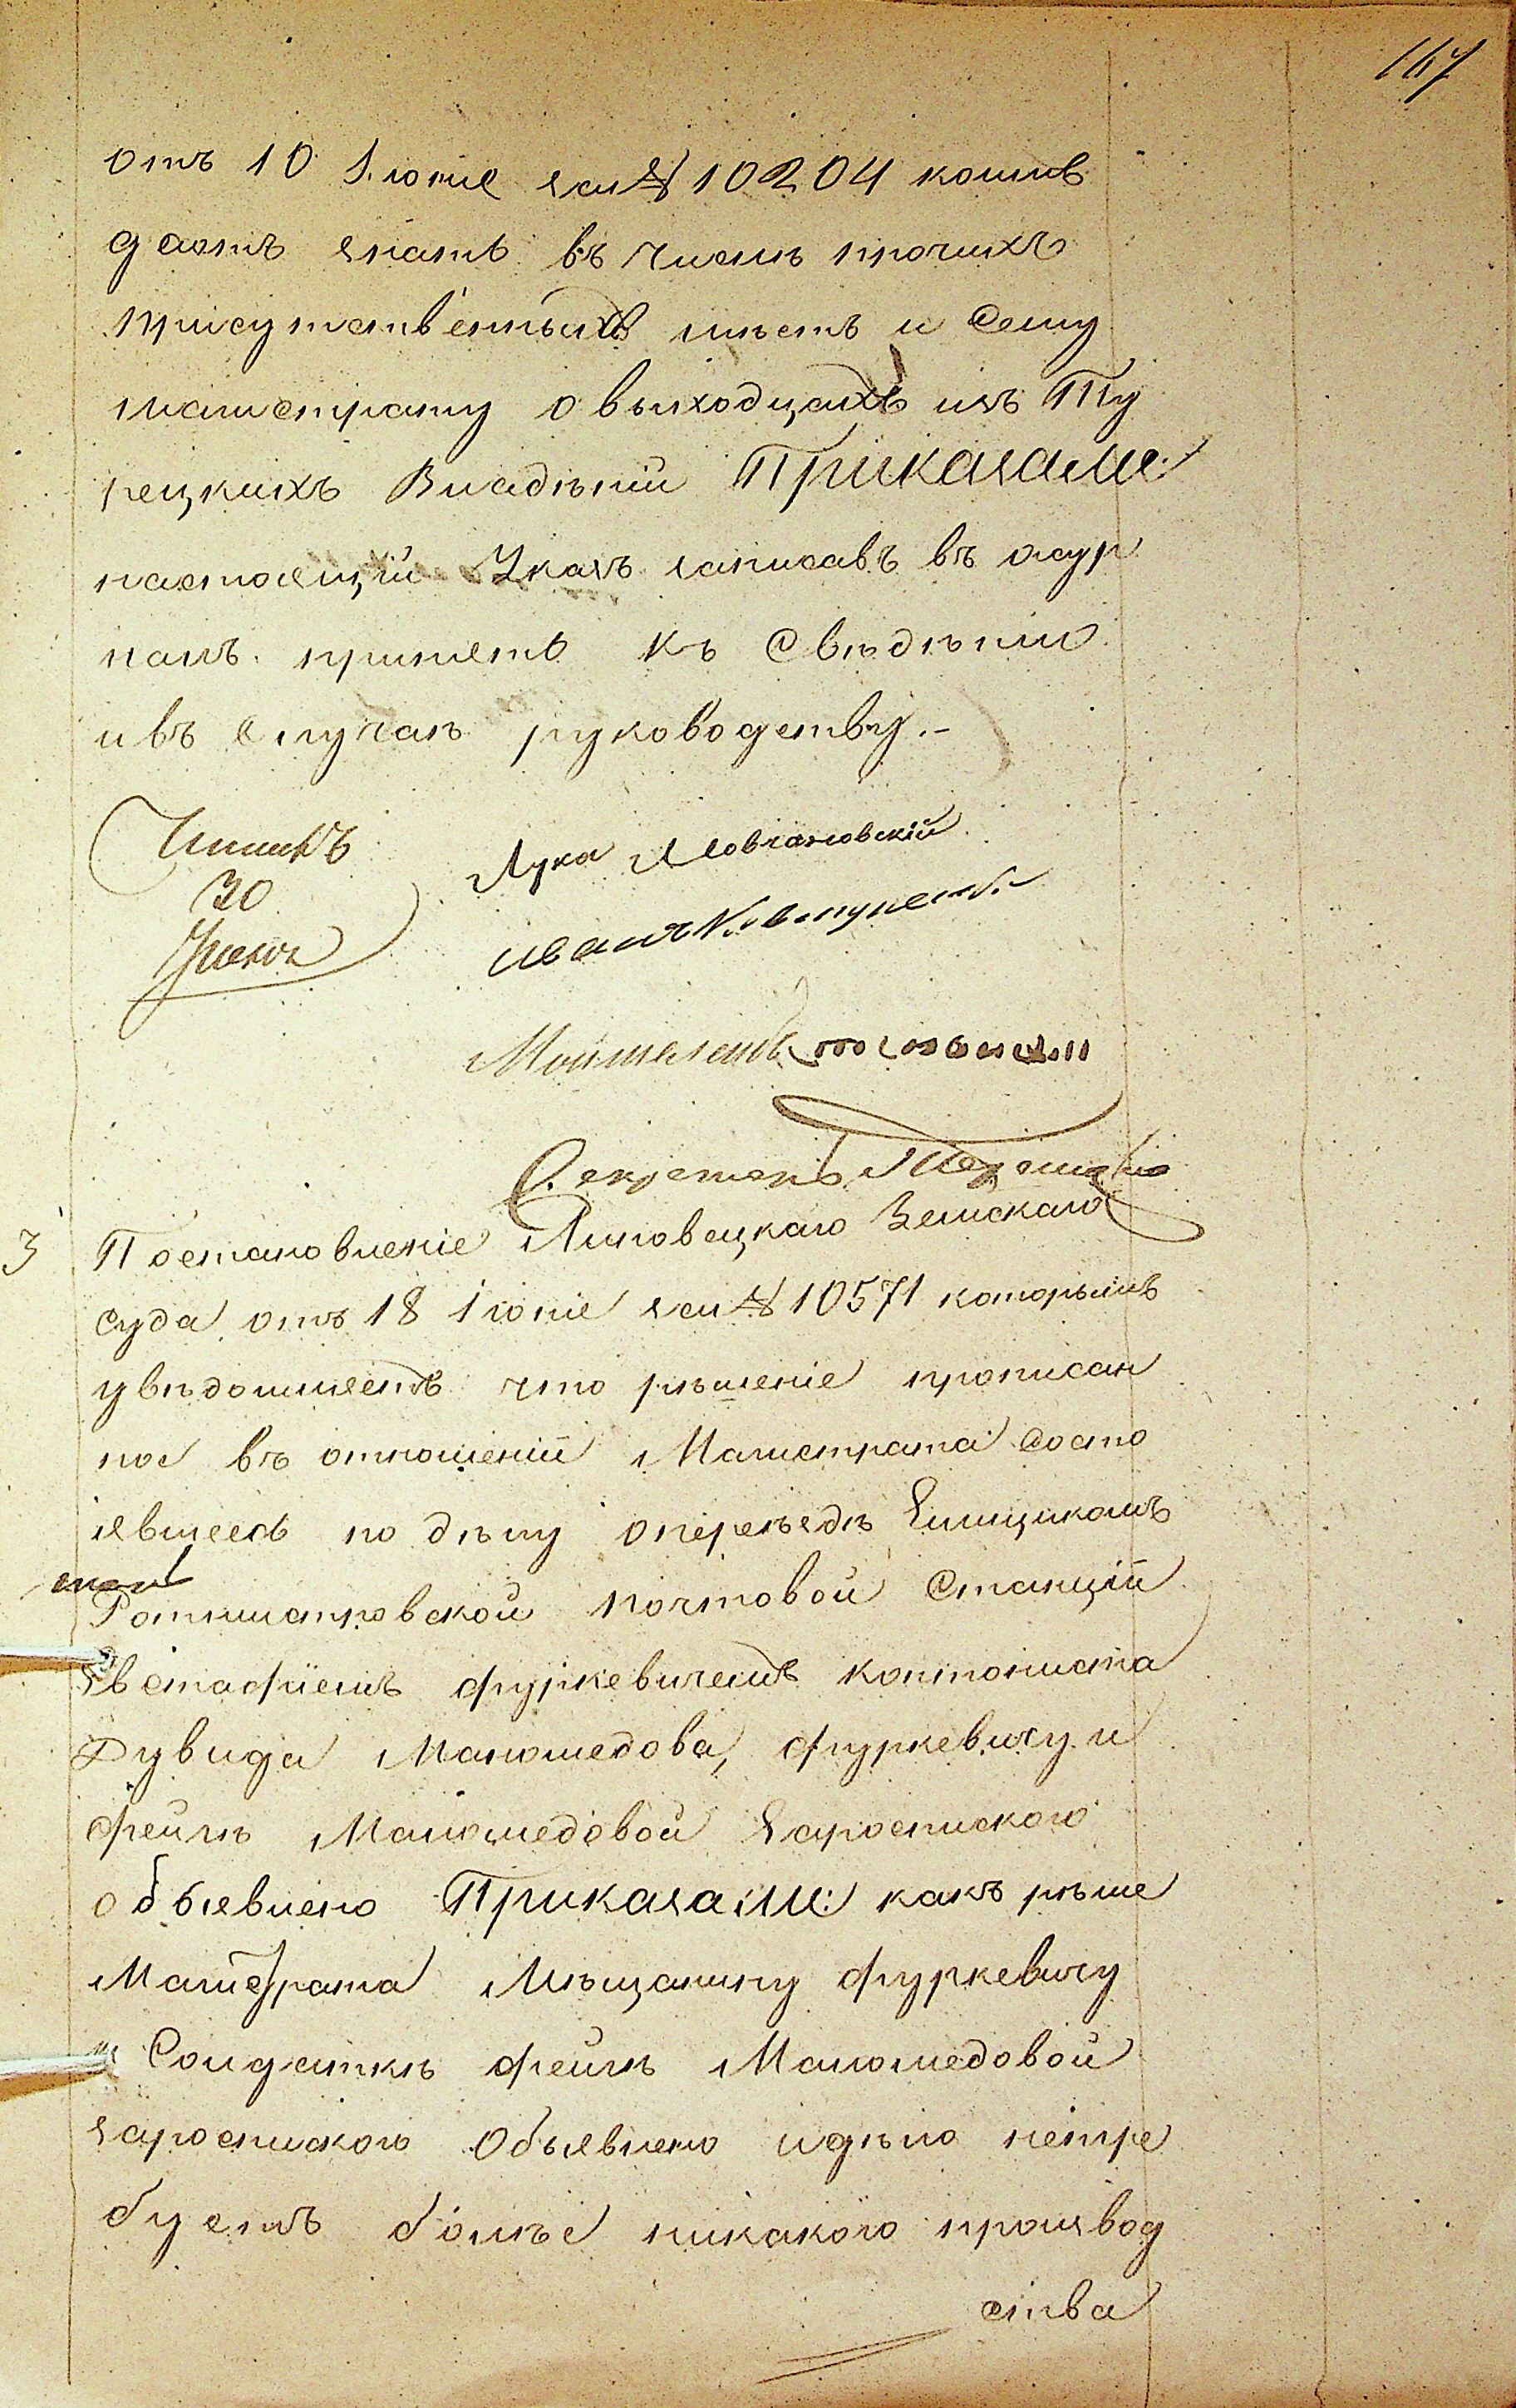 167
отъ 10 Іюня за № 10204 коимъ
даетъ знать въ числѣ прочихъ
присутственныхъ мѣстъ и сему
магистрату о выходцахъ изъ Ту
рецкихъ Владѣній Приказали:
настоящій Указъ записавъ въ жур
налъ принять къ Свѣдѣнію
и въ случаѣ руководству.-
30
Лука Мовчановскій
Иванъ
Секретарь
3 Постановленіе Липовецкаго Земскаго
суда отъ 18 Іюня за № 10571 которымъ
увѣдомляетъ что рѣшеніе прописан
ное въ отношеніи Магистрата состо
явшееся по дѣлу о переѣздѣ Ямщикомъ
Ротмистровской почтовой Станціи
Евстафіемъ Фуркевичемъ кантониста
Дувида Маломедова, Фуркевичу и
Фейгѣ Маломедовой зароспискою
объявлено Приказали: какъ рѣше
Магистрата Мѣщанину Фуркевичу
и Солдаткѣ Фейгѣ Маломедовой
зароспискою Объявлено и дѣло нетре
буетъ болѣе никакого производ
ства